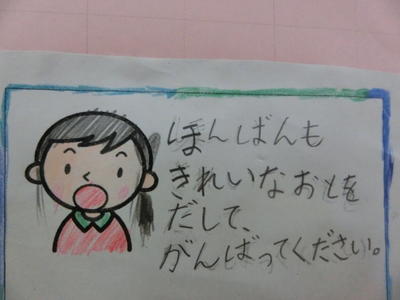 ほんばんも
きれいなおとを
だして、
がんばってください。